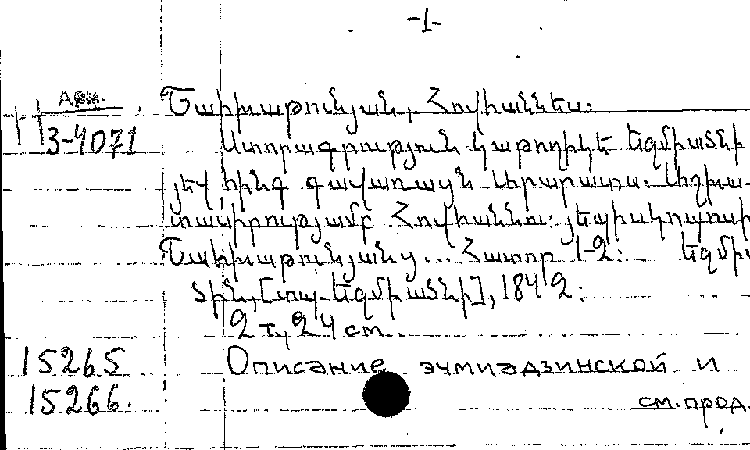 -1-
Арм.
3-4071
Շահխաթունյան, Հովհաննես.
Ստորագրություն կաթողիկե Եզմիածնի
յեվ հինգ գավառացն Արարատա. Աշխա-
տասիրությամբ Հովհաննու յեպիսկոպոսի
Շահխաթունյանց... Հատոր 1-2: Եզմիա-
ծին, [տպ. Եզմիածնի], 1842:
2 т., 24 см.
15265 Описание эчмиадзинской и
15266. см. прод.